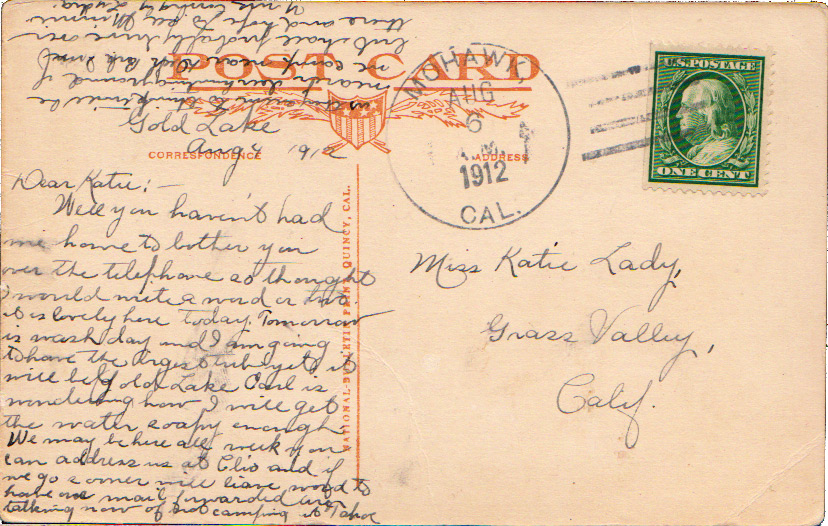 POST CARD
CORRESPONDENCE
ADDRESS
MOHAWK,
AUG
6
A.M.
1912
CAL.
U.S. POSTAGE
ONE CENT
NATIONAL-BULLETIN PRINT, QUINCY, CAL.
Gold Lake
Aug 4 1912
Dear Katie:-
Well you haven't had
me home to bother you
over the telephone so thought
I would write a word or two.
it is lovely here today. Tomorrow
is wash day and I am going
to have the largest tub yet, it
will be Gold Lake Carl is
wondering how I will get
the water soapy enough.
We may be here all week you
can address us at Clio and if
we go sooner will leave word to
have our mail forwarded. are
talking now of camping at Tahoe
we camp near
but shall probably drive over
there and hope to see Minnie
Miss Katie Lady,
Grass Valley,
Calif.